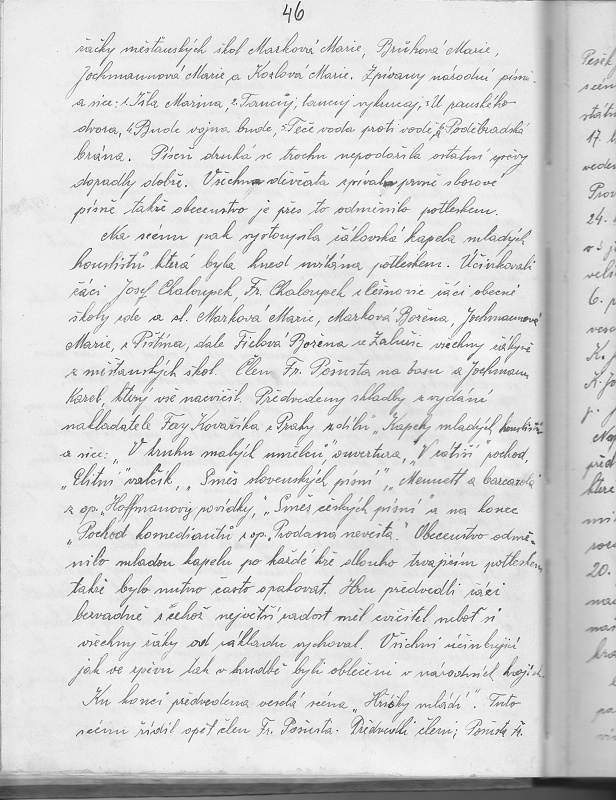 46
žačky měšťanských škol Marková Marie, Brůhová Marie,
Jochmannová Marie, a Kozlová Marie. Zpívany národní písně
a sice: 1. Išla Marina, 2. Tancuj, tancuj vykrucaj, 3. U panského
dvora, 4. Bude vojna bude, 5. Teče voda proti vodě, 6. Poděbradská
brána. Píseň druhá se trochu nepodařila ostatní zpěvy
dopadly dobře. Všechna děvčata zpívala prvně sborové
písně takže obecenstvo je přes to odměnilo potleskem.
Na scénu pak vystoupila žákovská kapela mladých
houslistů která byla hned uvítána potleskem. Účinkovali
žáci Josef Chaloupek, Fr. Chaloupek z Lešnovic žáci obecné
školy zde a sl. Marková Marie, Marková Božena, Jochmannová
Marie, z Pištína, dále Ficlová Božena ze Zálužic všechny žákyně
z měšťanských škol. Člen Fr. Pošusta na basu a Jochmann
Karel, který vše nacvičil. Předvedeny skladby z vydání
nakladatele Fay Kovaříka z Prahy z dílů „Kapely mladých houslistů
a sice: „V kruhu malých umělců" ouvertura, „V zátiší" pochod,
„Elitní" valčík, „Směs slovenských písní", „Mennett a barcarola
z op. Hoffmanovy povídky," „Směs českých písní" a na konec
„Pochod komediantů z op. Prodaná nevěsta." Obecenstvo odmě-
nilo mladou kapelu po každé hře dlouho trvajícím potleskem
takže bylo nutno často opakovat. Hru předvedli žáci
bezvadně z čehož největší radost měl cvičitel neboť si
všechny žáky od základu vychoval. Všichni účinkující
jak ve zpěvu tak v hudbě byli oblečeni v národních krojích.
Ku konci předvedena veselá scéna „Hříčky mládí". Tuto
scénu řídil opět člen Fr. Pošusta. Předvedli členi; Pošusta Fr.
Pešek
scén
státn
17. 
veden
Pro
24.
6. 
vese
Ku
Nap
před
které
20.